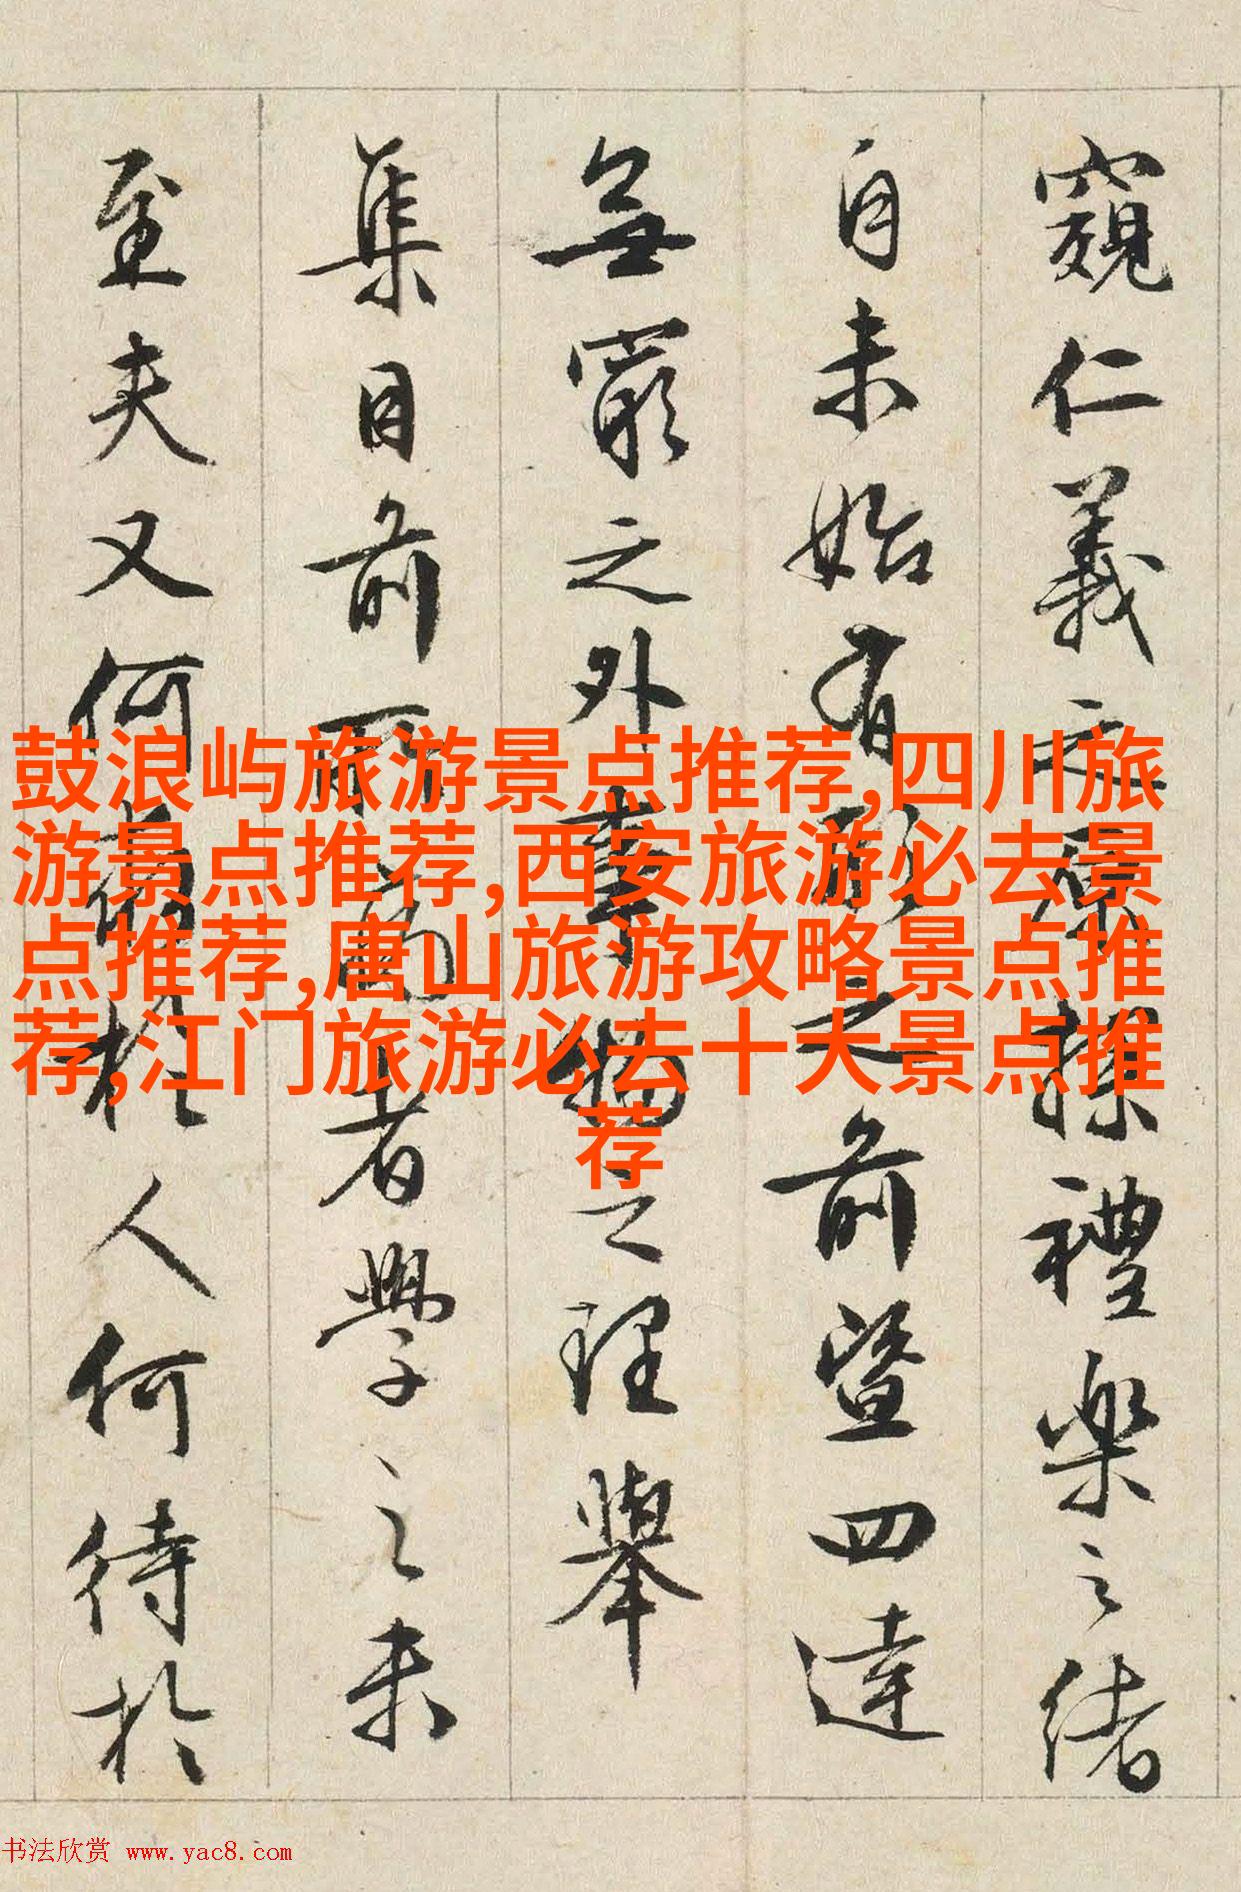 窺仁義之原探禮樂之緒
自未始有形之前暨四達
無窮之外事物之理舉
集目前所病者學之未
至夫又何求於人何待於
鼓浪屿旅游景点推荐,四川旅
游景点推荐,西安旅游必去景
点推荐,唐山旅游攻略景点推
荐,江门旅游必去十大景点推
荐
书法欣赏 www.yac8.com